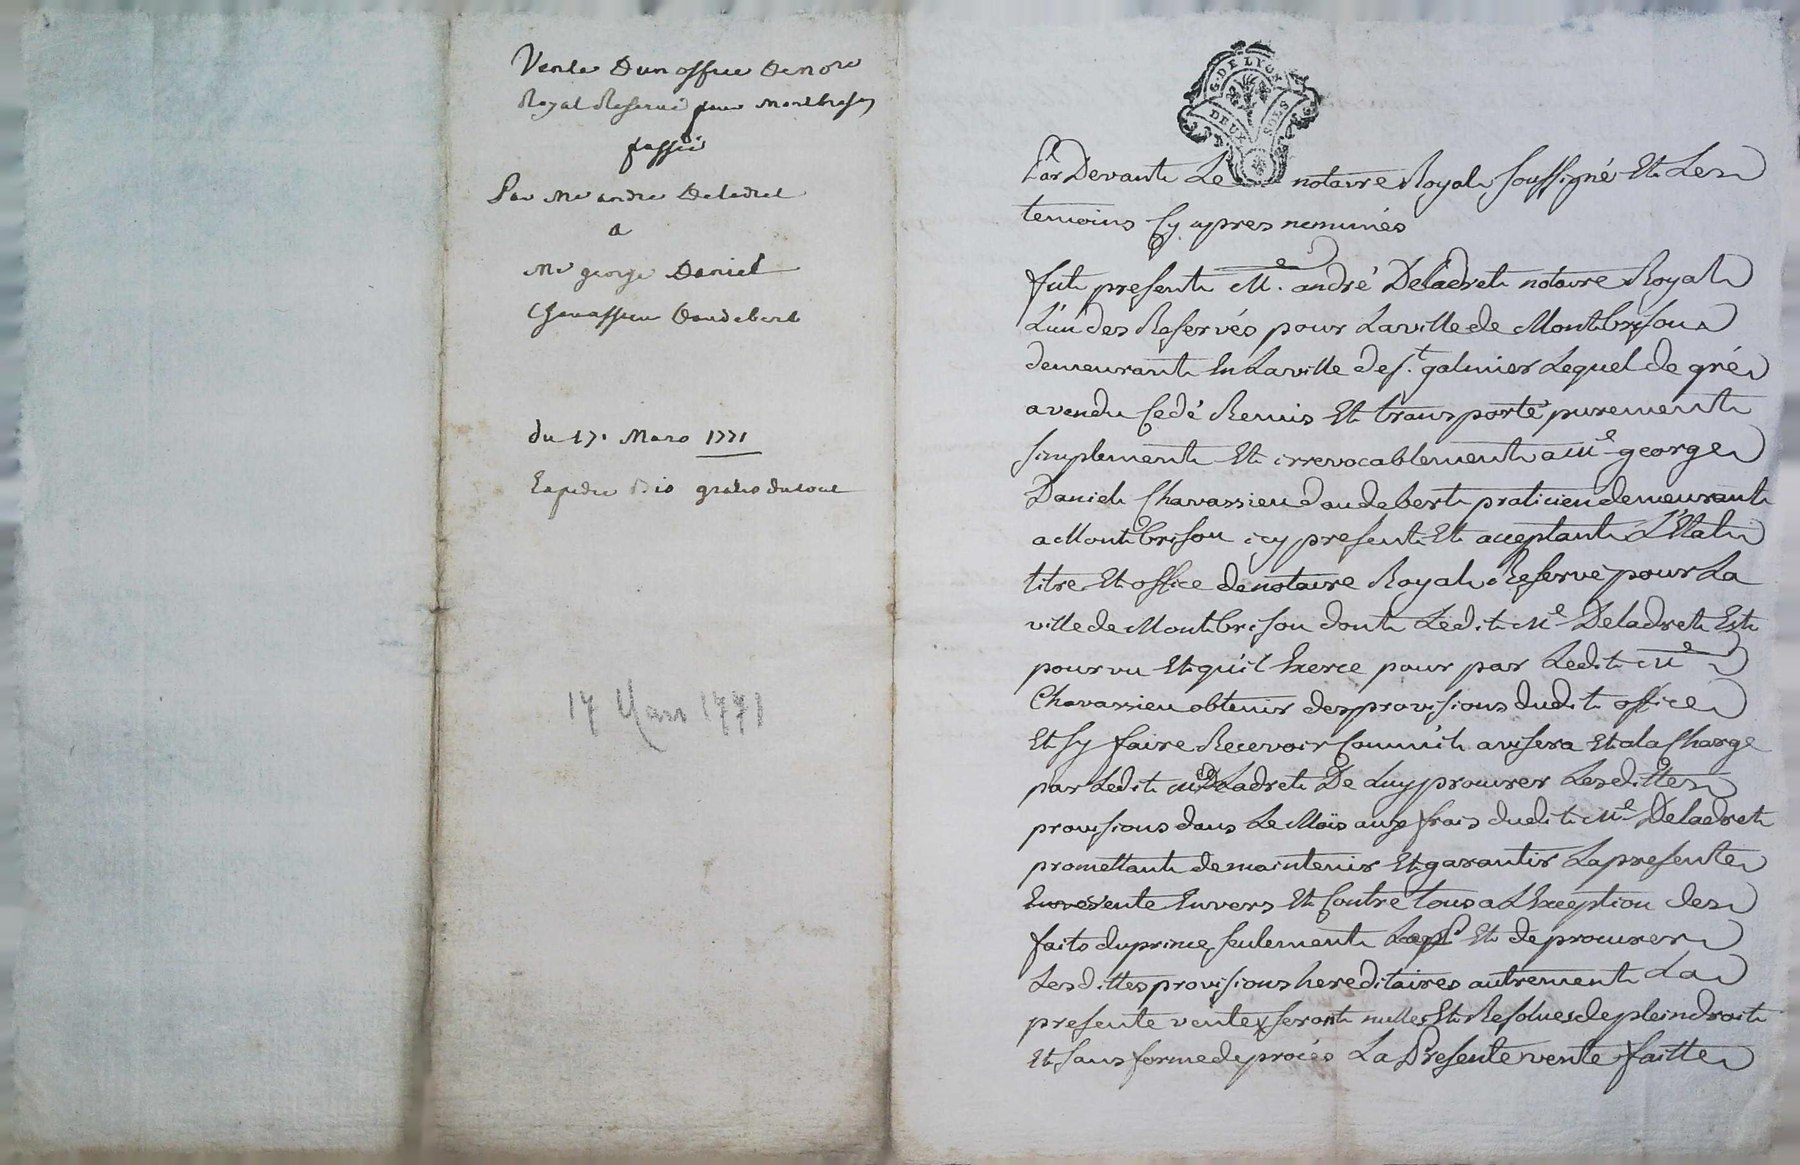 Vente D'un office De nore
Royal Reservé pour Montbrison
passée
Par Me andré Deladret
a
Me george Daniel
Chavassieu Daudebert
du 17. Mars 1771
Expedié gratis du tout
17 Mars 1771
G. DE LYON
DEUX SOLS
Par Devant Le notaire Royal Soussigné Et Les
temoins Cy apres nommés
fut present Me. andré Deladret notaire Royal
L'un des Reservés pour La ville de Montbrison
demeurant En La ville de St. galmier Lequel de gré
a vendu Cedé Remis Et transporté purement
simplement Et irrevocablement a Me george
Daniel Chavassieu daudebert praticien demeurant
a Montbrison icy present Et acceptant L'Etat
titre Et office de notaire Royal Reservé pour La
ville de Montbrison dont Ledit Me Deladret Est
pourvu Et qu'il Exerce pour par Ledit Me
Chavassieu obtenir des provisions dudit office
Et Sy faire Recevoir Comm'il avisera Et a la Charge
par Ledit Me Deladret De Luy procurer Lesdittes
provisions dans Le Mois aux frais dudit Me Deladret
promettant de maintenir Et garantir La presente
vente Envers Et Contre tous a L'Exception des
faits du prince seulement Et de procurer
Lesdittes provisions hereditaires autrement La
presente vente seront nulles Et Resolues de plein droit
Et sans forme de procés La Presente vente faitte